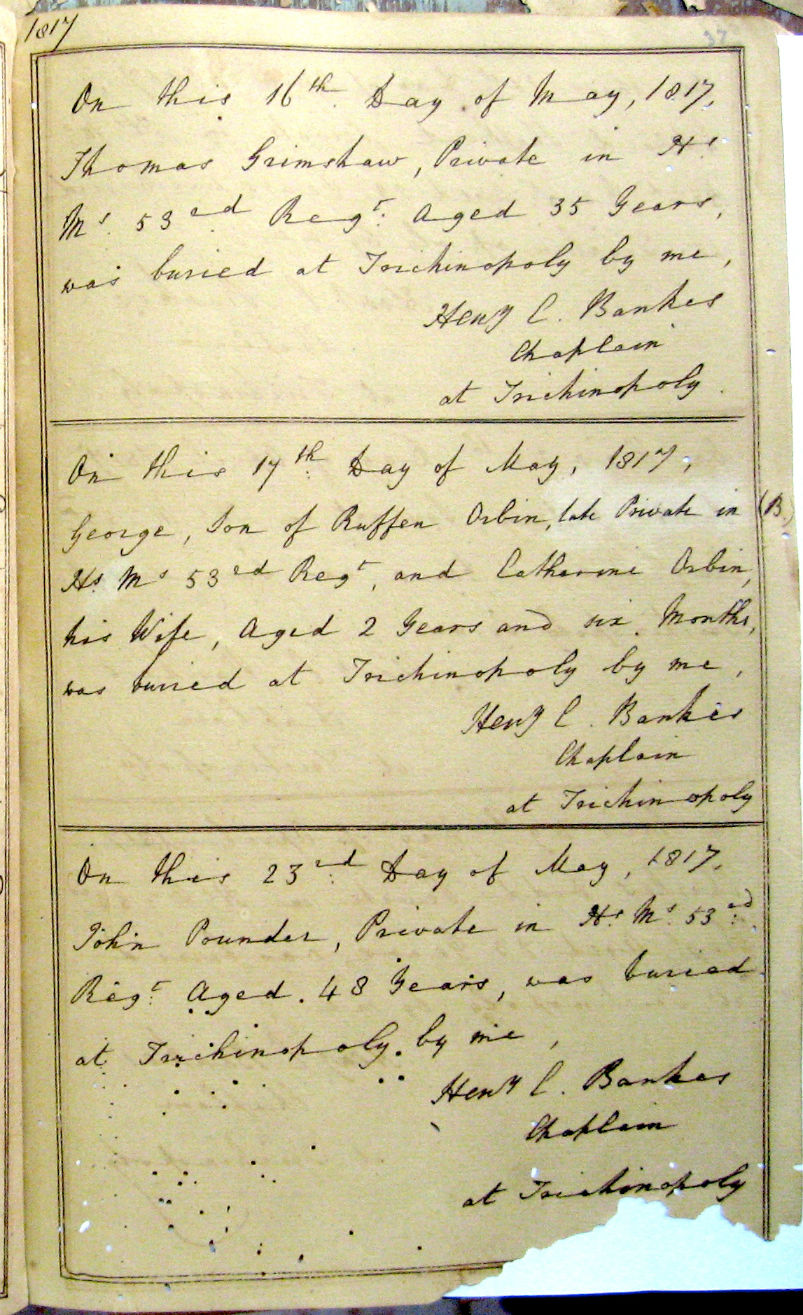 1817
37
On this 16th Day of May, 1817,
Thomas Grimshaw, Private in Hs
Ms 53rd Regt. Aged 35 Years,
was buried at Trichinopoly by me,
Heny C. Bankes
Chaplain
at Trichinopoly.
On this 17th Day of May, 1817,
George, Son of Ruffen Orbin, late Private in (B.)
Hs Ms 53rd Regt, and Catharine Orbin,
his Wife, Aged 2 Years and six Months,
was buried at Trichinopoly by me,
Heny C. Bankes
Chaplain
at Trichinopoly
On this 23rd Day of May, 1817,
John Pounder, Private in Hs Ms 53rd
Regt Aged 48 Years, was buried
at Trichinopoly by me,
Heny C. Bankes
Chaplain
at Trichinopoly